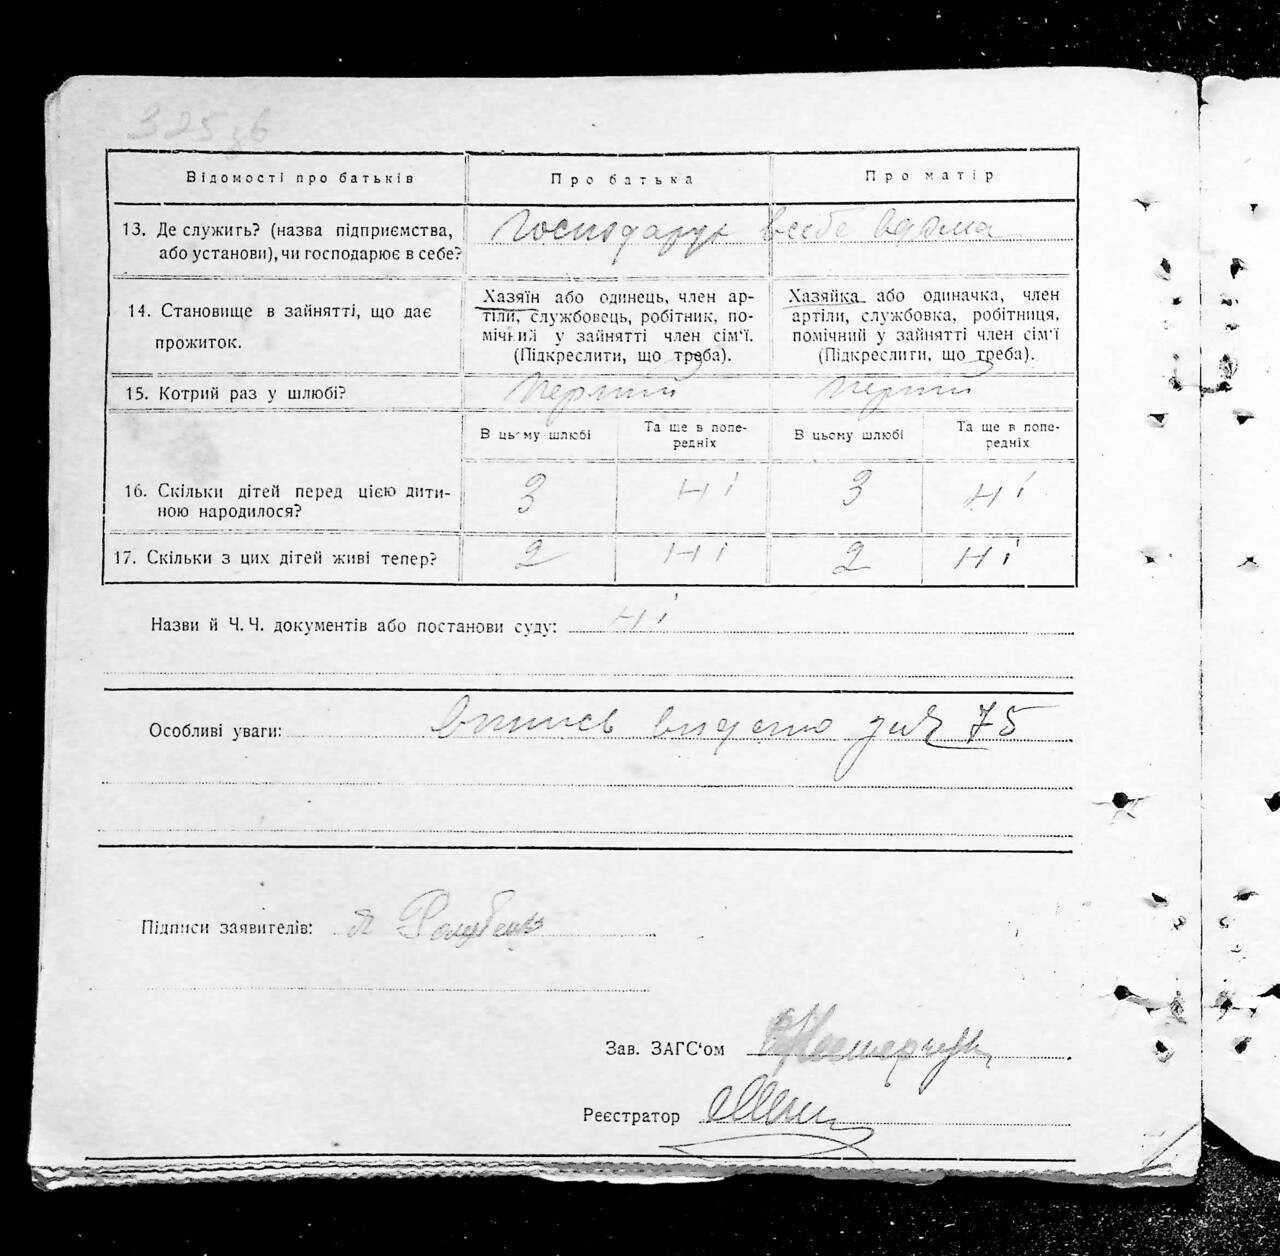 325 зв
Відомості про батьків
Про батька
Про матір
13. Де служить? (назва підприємства,
або установи), чи господарює в себе?
Господарує в себе вдома
14. Становище в зайнятті, що дає
прожиток.
Хазяїн або одинець, член ар-
тіли, службовець, робітник, по-
мічний у зайнятті член сім'ї.
(Підкреслити, що треба).
Хазяйка або одиначка, член
артіли, службовка, робітниця,
помічний у зайнятті член сім'ї
(Підкреслити, що треба).
15. Котрий раз у шлюбі?
перший
перший
В цьому шлюбі
Та ще в попе-
редніх
В цьому шлюбі
Та ще в попе-
редніх
16. Скільки дітей перед цією дити-
ною народилося?
3
ні
3
ні
17. Скільки з цих дітей живі тепер?
2
ні
2
ні
Назви й Ч.Ч. документів або постанови суду: ні
Особливі уваги: випись видано 75
Підписи заявителів:
Зав. ЗАГС'ом
Реєстратор